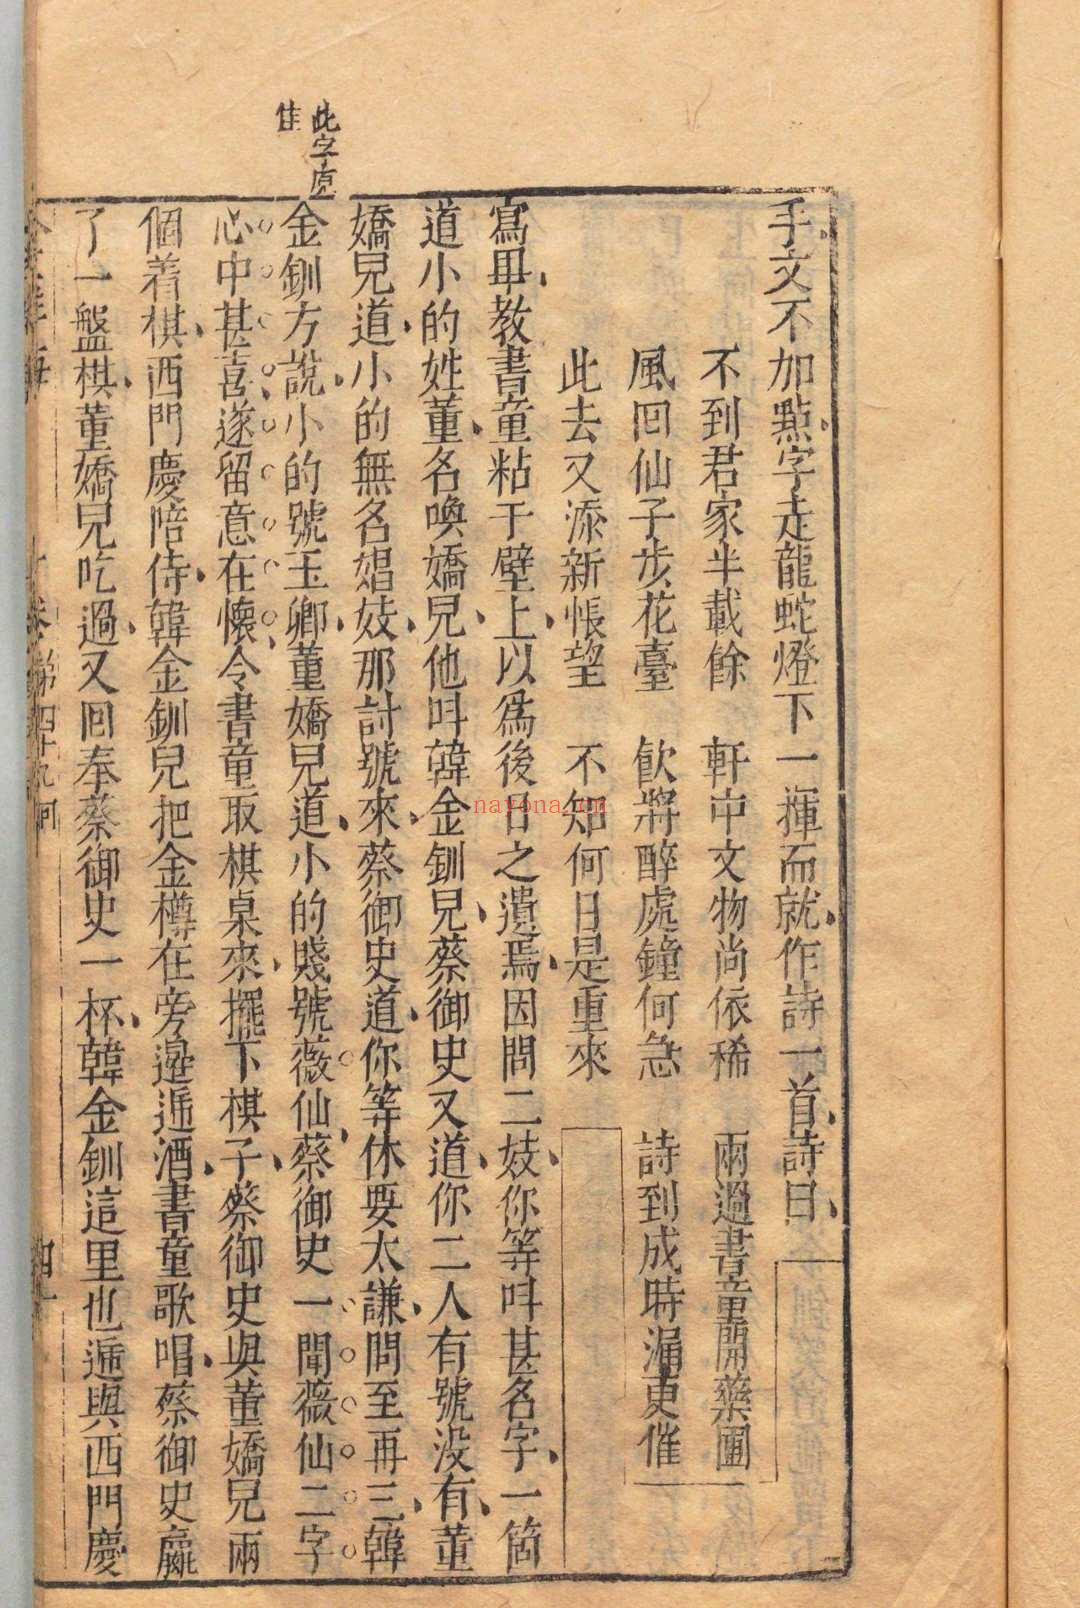 手文不加點字走龍蛇燈下一揮而就作詩一首詩曰
不到君家半載餘 軒中文物尚依稀 雨過書童開藥圃
風回仙子步花臺 飲將醉處鐘何急 詩到成時漏更催
此去又添新悵望 不知何日是重來
寫畢教書童粘于壁上以爲後日之遺焉因問二妓你等叫甚名字一箇
道小的姓董名喚嬌兒他叫韓金釧兒蔡御史又道你二人有號没有董
嬌兒道小的無名娼妓那討號來蔡御史道你等休要太謙問至再三韓
金釧方說小的號玉卿董嬌兒道小的賤號薇仙蔡御史一聞薇仙二字
心中甚喜遂留意在懷令書童取棋桌來擺下棋子蔡御史與董嬌兒兩
個着棋西門慶陪侍韓金釧兒把金樽在旁邊遞酒書童歌唱蔡御史贏
了一盤棋董嬌兒吃過又回奉蔡御史一杯韓金釧這里也遞與西門慶
此字原
佳
第四十九囘
nayona.cn